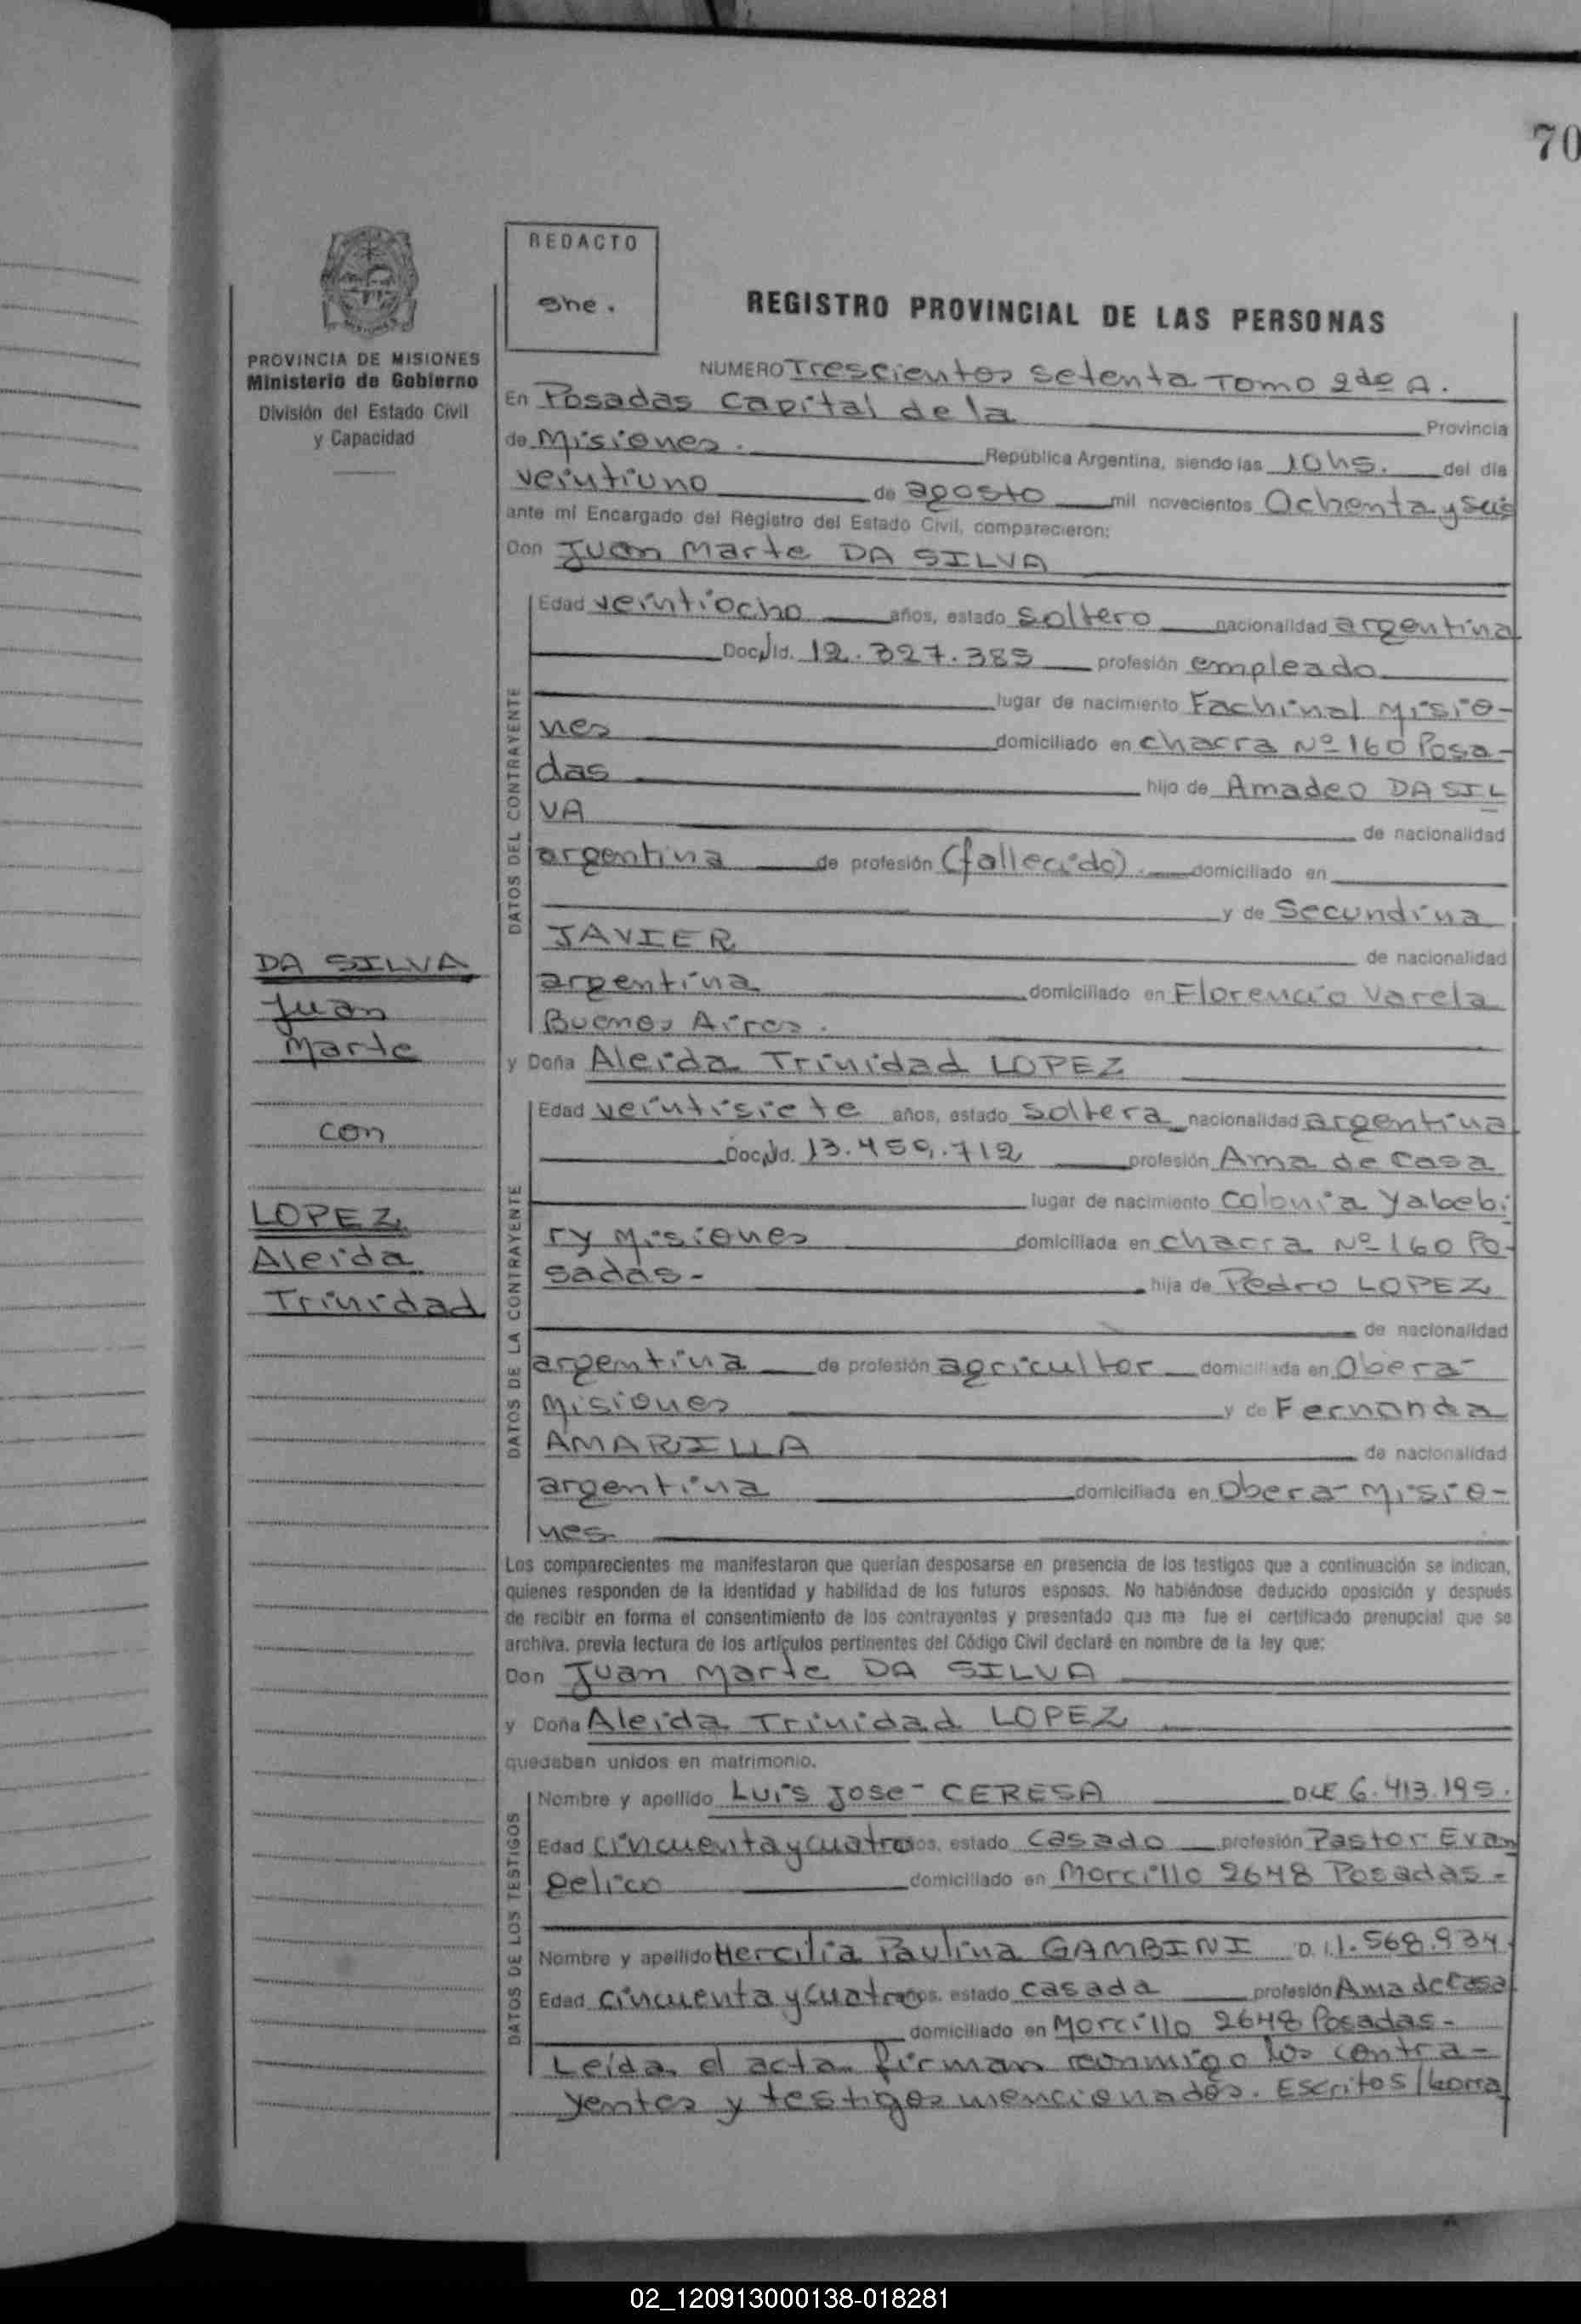 70
REDACTO
PROVINCIA DE MISIONES
Ministerio de Gobierno
División del Estado Civil
y Capacidad
REGISTRO PROVINCIAL DE LAS PERSONAS
NUMERO Trescientos setenta Tomo 2do A.
En Posadas Capital de la Provincia
de Misiones. República Argentina, siendo las 10hs. del día
veintiuno de agosto mil novecientos Ochenta y seis
ante mí Encargado del Registro del Estado Civil, comparecieron:
Don Juan Marte DA SILVA
DATOS DEL CONTRAYENTE
Edad veintiocho años, estado soltero nacionalidad argentina
Doc. Id. 12.327.385 profesión empleado
lugar de nacimiento Fachinal Misio-
nes domiciliado en chacra Nº 160 Posa-
das hijo de Amadeo DA SIL
VA de nacionalidad
argentina de profesión (fallecido). domiciliado en
y de Secundina
JAVIER de nacionalidad
argentina domiciliado en Florencio Varela
Buenos Aires.
y Doña Aleida Trinidad LOPEZ
DATOS DE LA CONTRAYENTE
Edad veintisiete años, estado soltera nacionalidad argentina
Doc. Id. 13.459.712 profesión Ama de casa
lugar de nacimiento colonia Yabebi
ry Misiones domiciliada en chacra Nº 160 Po-
sadas- hija de Pedro LOPEZ
de nacionalidad
argentina de profesión agricultor domiciliada en Obera-
Misiones y de Fernanda
AMARILLA de nacionalidad
argentina domiciliada en Obera- Misio-
nes.
DA SILVA
Juan
Marte
con
LOPEZ
Aleida
Trinidad
Los comparecientes me manifestaron que querían desposarse en presencia de los testigos que a continuación se indican,
quienes responden de la identidad y habilidad de los futuros esposos. No habiéndose deducido oposición y después
de recibir en forma el consentimiento de los contrayentes y presentado que me fue el certificado prenupcial que se
archiva, previa lectura de los artículos pertinentes del Código Civil declaré en nombre de la ley que:
Don Juan Marte DA SILVA
y Doña Aleida Trinidad LOPEZ
quedaban unidos en matrimonio.
DATOS DE LOS TESTIGOS
Nombre y apellido Luis Jose- CERESA DLE 6.413.195.
Edad cincuenta y cuatro años, estado casado profesión Pastor Evan
gelico domiciliado en Morcillo 2648 Posadas-
Nombre y apellido Hercilia Paulina GAMBINI D. 1.568.934
Edad cincuenta y cuatro años, estado casada profesión Ama de casa
domiciliado en Morcillo 2648 Posadas-
Leída el acta firman conmigo los contra-
yentes y testigos mencionados. Escritos/borra
02_120913000138-018281